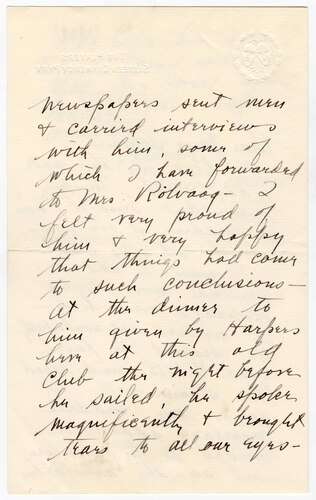 newspapers sent men
& carried interviews
with him, some of
which I have forwarded
to Mrs. Rölvaag – I
felt very proud of
him & very happy
that things had come
to such conclusions –
At the dinner to
him given by Harpers
here at this old
club the night before
he sailed, he spoke
magnificently & brought
tears to all our eyes –